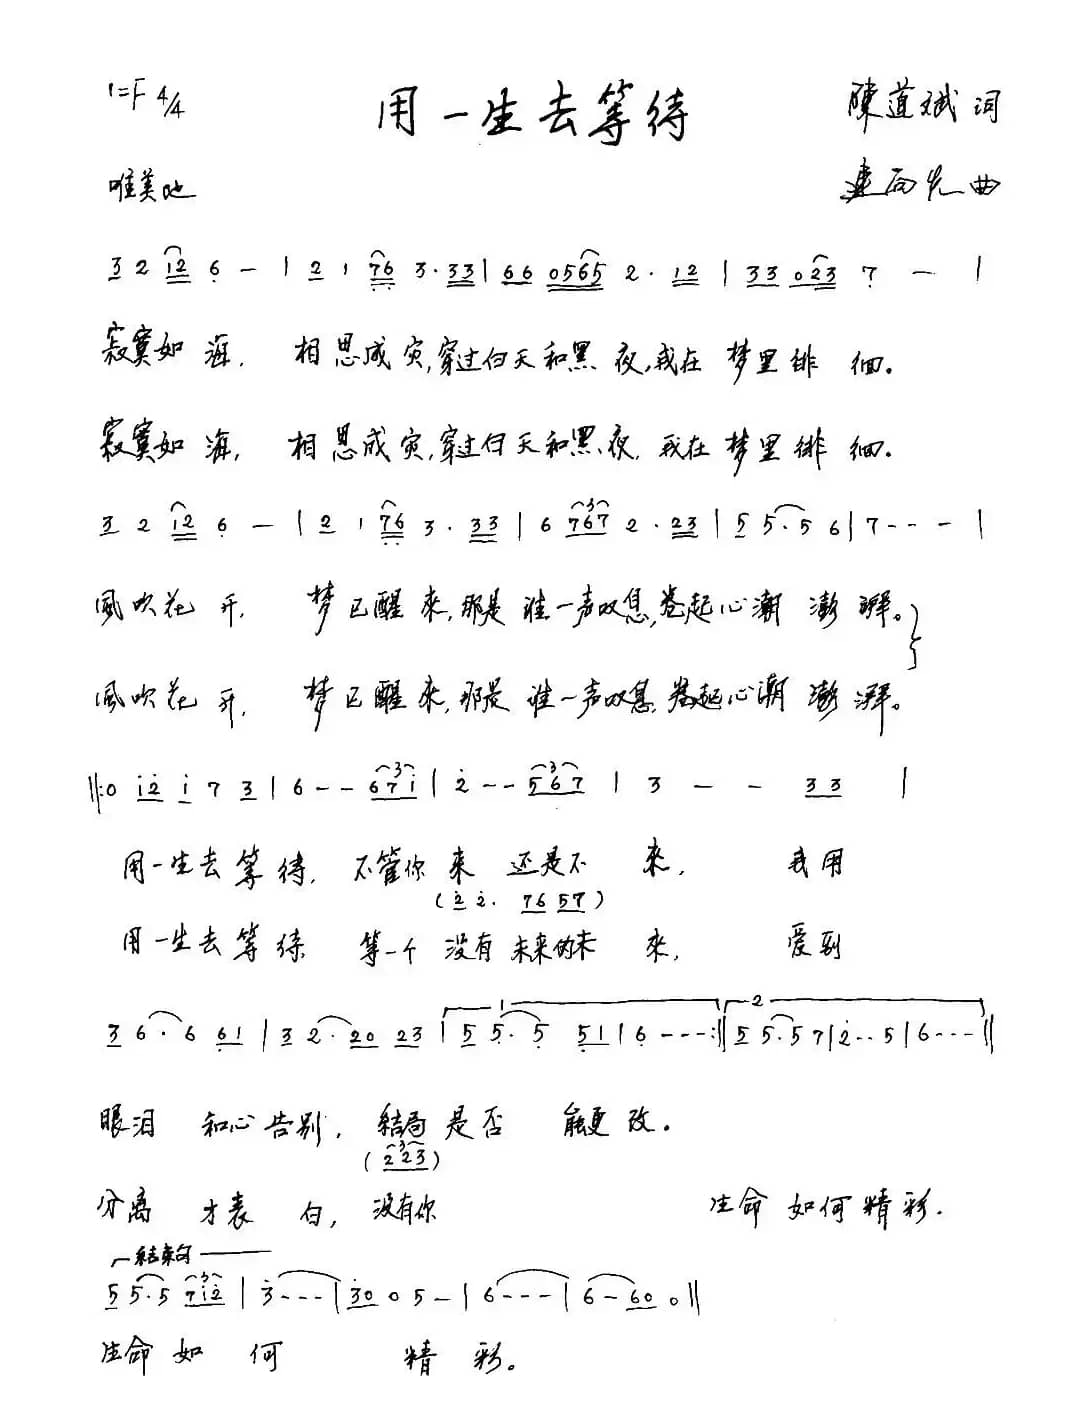 1=F 4/4
用一生去等待
陳道斌 词
唯美地
曲
3 2 12 6 — | 2 1 76 3·33 | 66 0565 2·12 | 33 023 7 — |
寂寞如海，相思成灾，穿过白天和黑夜，我在梦里徘徊。
寂寞如海，相思成灾，穿过白天和黑夜，我在梦里徘徊。
3 2 12 6 — | 2 1 76 3·33 | 6 767 2·23 | 5 5·5 6 | 7 - - - |
風吹花开，梦已醒來，那是谁一声叹息，卷起心潮澎湃。
風吹花开，梦已醒來，那是谁一声叹息，卷起心潮澎湃。
‖:0 i̇2̇ i̇ 7 3 | 6 - - 67i̇ | 2̇ - - 567 | 3 — — 33 |
用一生去等待，不管你来还是不來，我用
(2̇ 2̇· 76 57)
用一生去等待 等一个没有未来的未來，爱到
1 2
3 6·6 61 | 3 2·20 23 | 5 5·5 51 | 6 - - - :‖ 5 5·57 | 2̇ - - 5 | 6 - - - ‖
眼泪和心告别，结局是否能更改。
(2 2 3)
分离才表白，没有你 生命如何精彩.
结束句
5 5·5 7i̇2̇ | 3̇ - - - | 3̇0 0 5 - | 6 - - - | 6 - 60 0 ‖
生命如何精彩。